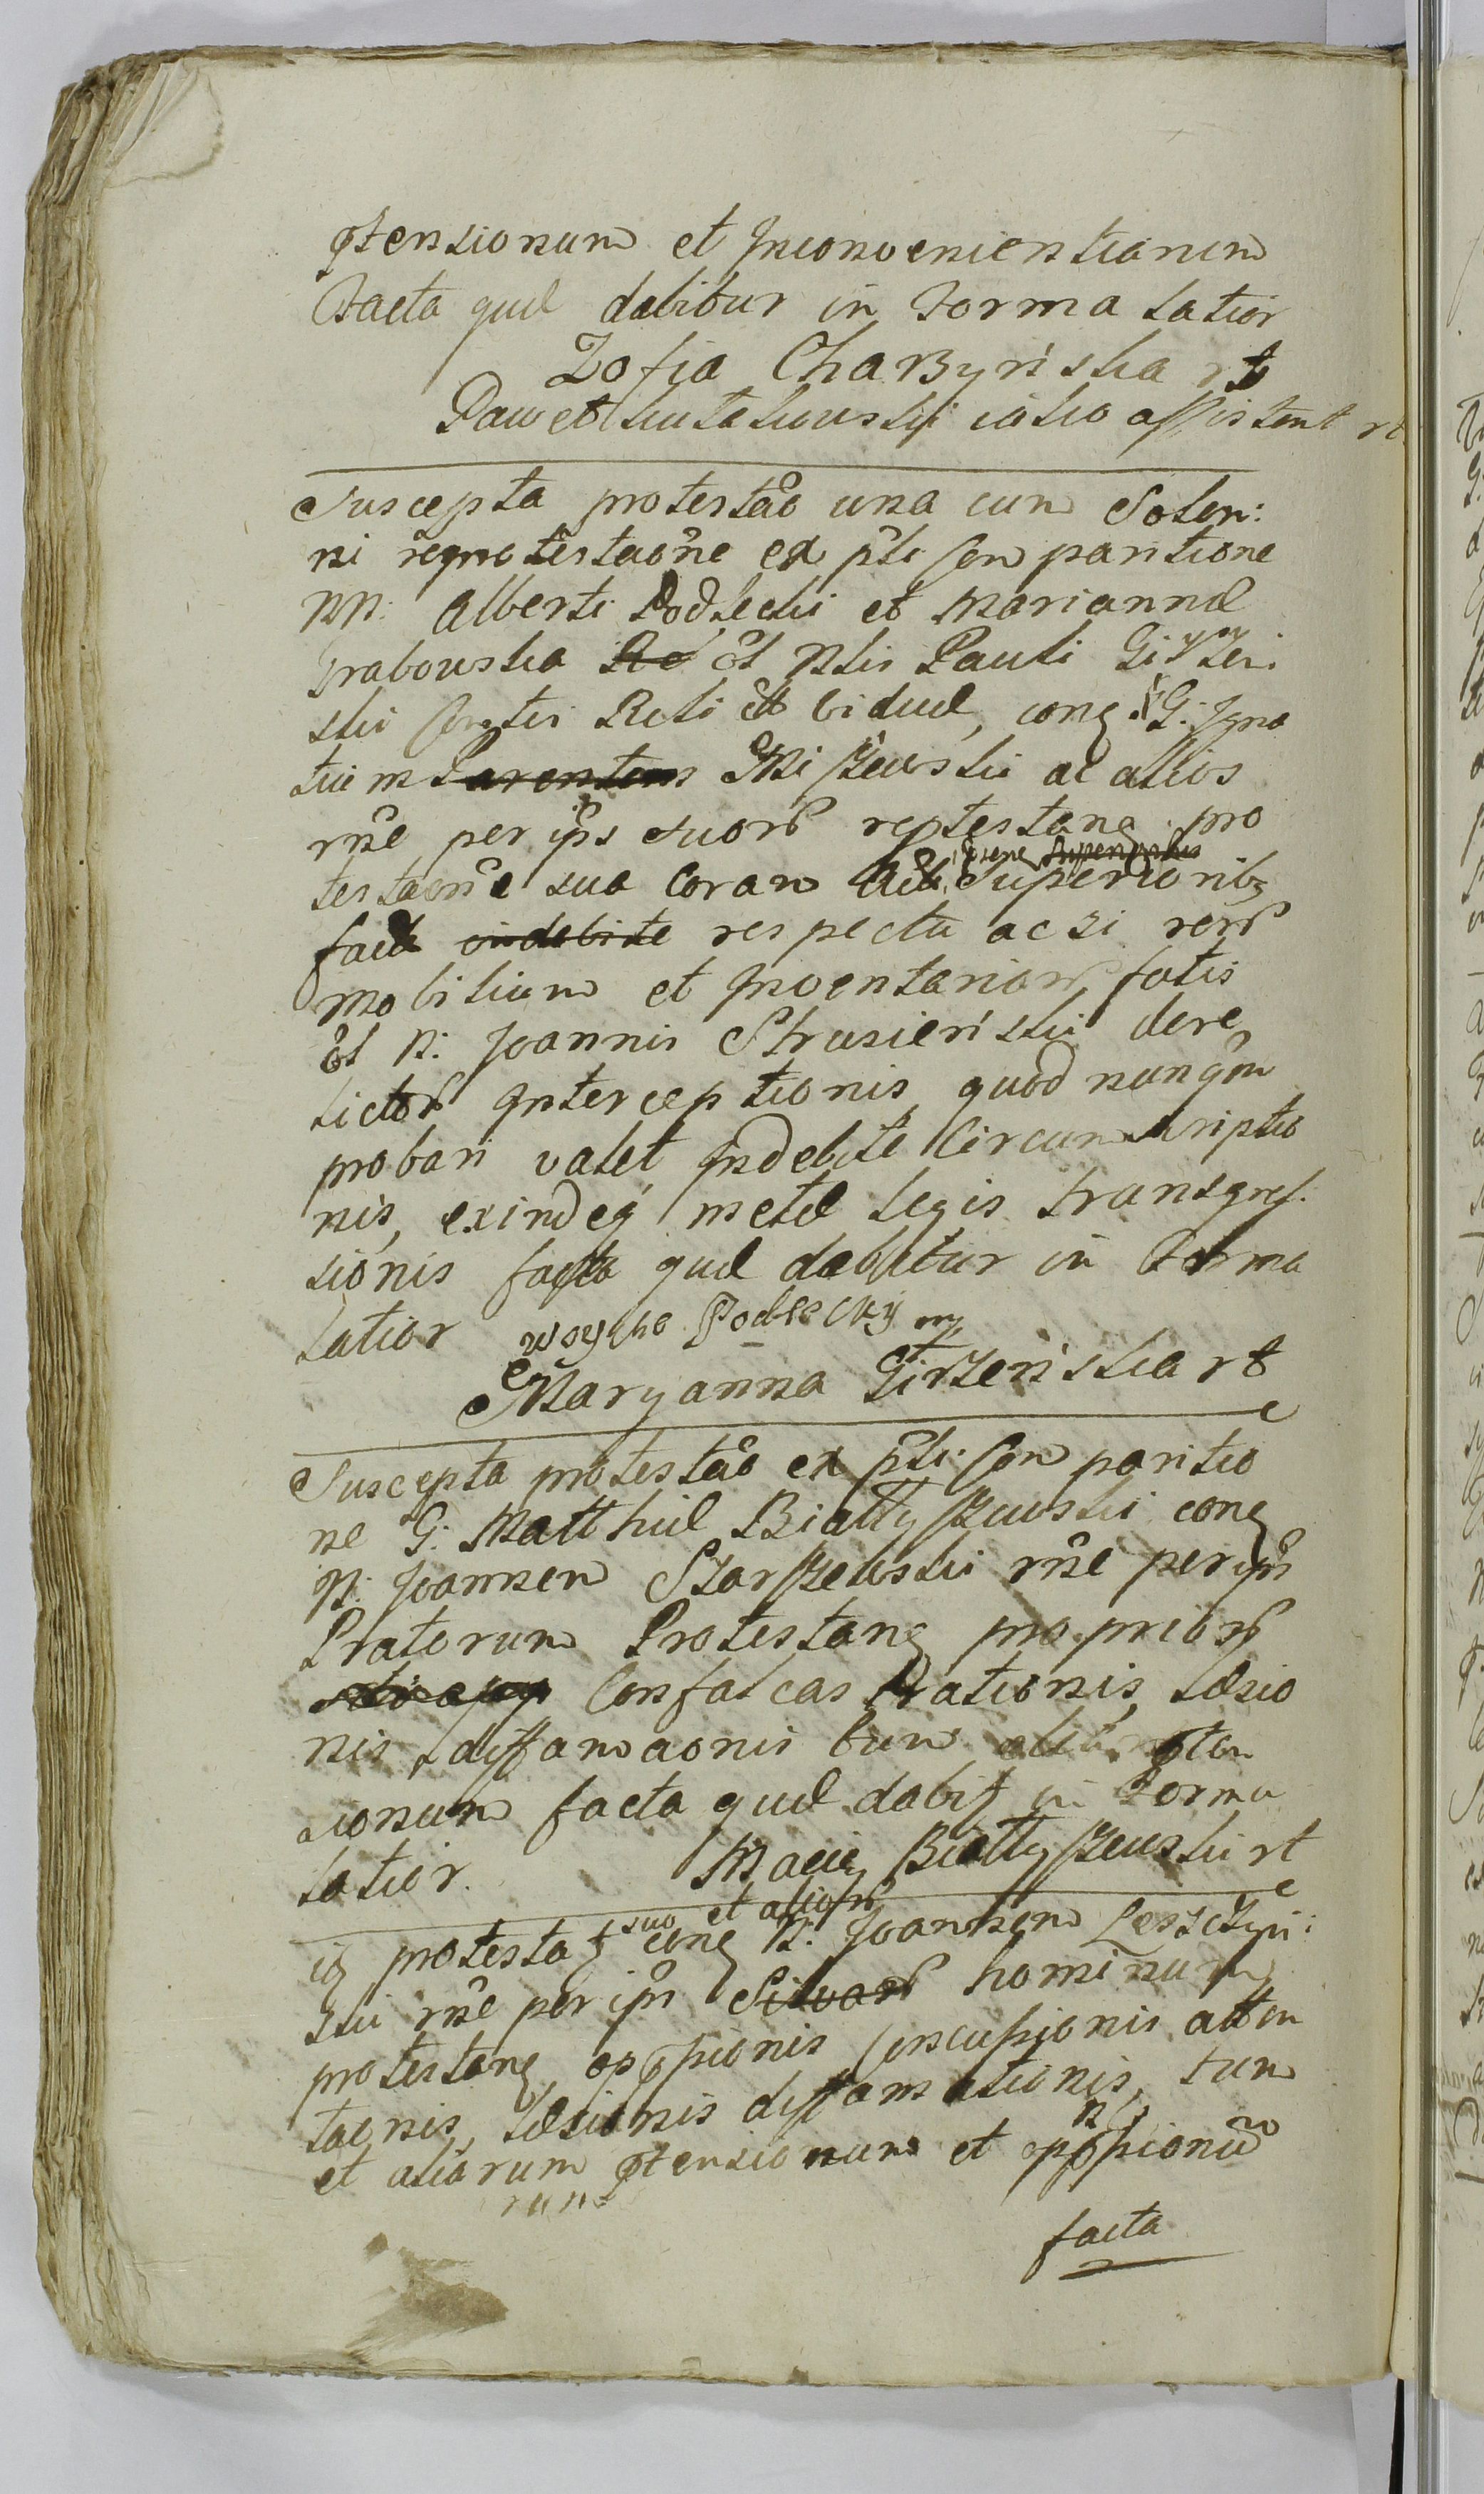 ptensionum et Inconvenientiarum
Facta quæ dabitur in Forma latior
Zofia Charzyńska rt
Paweł iako assistent rt
Suscepta protestao una cum Solen:
ni reprotestaone ex pti Comparitione
NN: Alberti Podlecki et Mariannæ
Grabowska Re ol Nlis Pauli Girzeń
ski Contis Reli et viduæ, conq G: Igna
tium Parentem Miszewski ac alios
rne per ips suorū reptestanq pro
testaone sua coram Actis Superioribq
facta indebite respectu ac si rerū
mobilium et Inventariorū fatis
ol N: Joannis Strusieński dere
lictorū Interceptionis, quod nunqm
probari valet Indebite Circumscriptio
nis, exindeq metæ legis transgres:
sionis facta quæ dabitur in Forma
latior woyciec Podlecky mp
Maryanna Girzeńska rt
Suscepta protestao ex pti Comparitio
ne G: Matthiæ Białłyszewski conq
N: Joannem Szarszewski rne per ips
Pratorum Protestanq propriorū
Confalcastrationis, læsio
nis, diffamaonis tum pten
sionum facta quæ dabit in Forma
latior. Maciey Białłyszewski rt
suo et aliorū
iq protestat conq N: Joannem Leszczyń:
ski rne per ips Silvarū hominum
protestanq oppssionis concussionis atten
taonis, læsionis diffamationis, tum
et aliorum ptensionum et oppssionū
facta